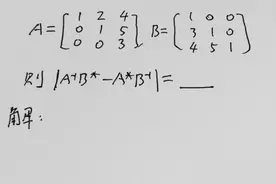 A = [1 2 4; 0 1 5; 0 0 3] B = (1 0 0; 3 1 0; 4 5 1)
则 |A⁻¹B* − A*B⁻¹| = ____
解: